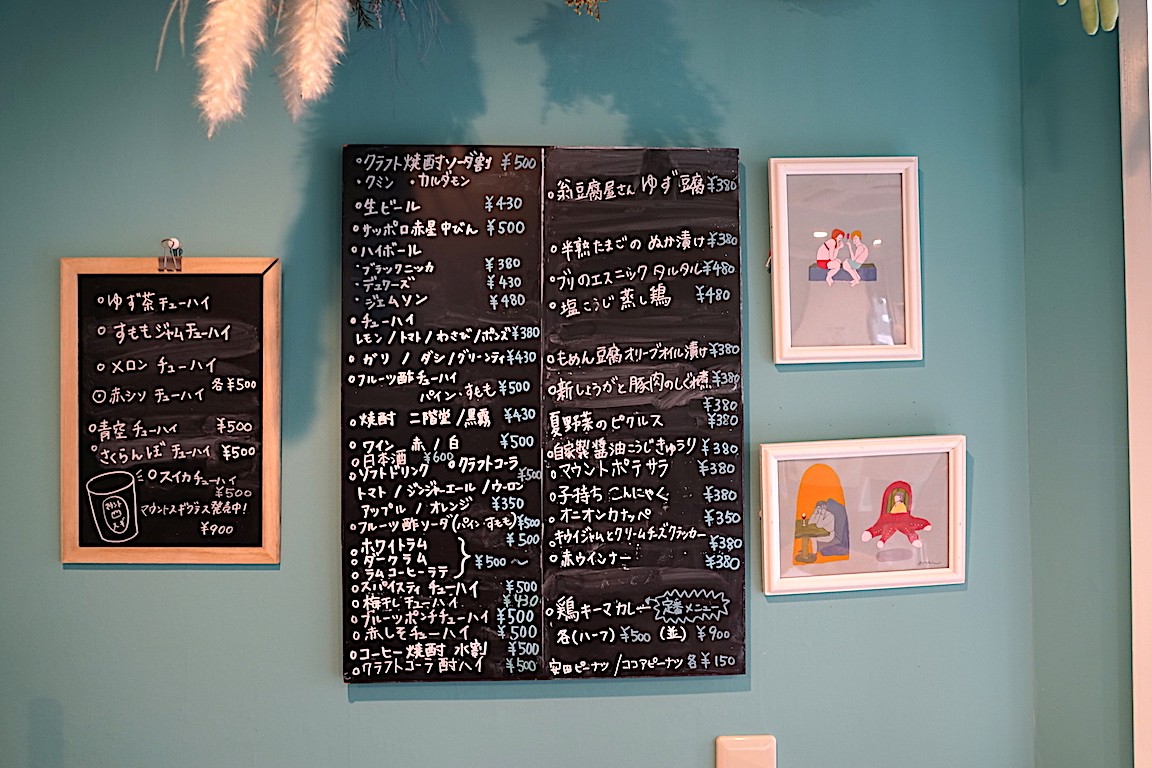 ○ゆず茶チューハイ
○すももジャムチューハイ
○メロンチューハイ
各¥500
○赤シソチューハイ
○青空チューハイ ¥500
○さくらんぼチューハイ ¥500
○スイカチューハイ
¥500
マウントスギグラス発売中!
¥900
○クラフト焼酎ソーダ割 ¥500
・クミン ・カルダモン
○生ビール ¥430
○サッポロ赤星中びん ¥500
○ハイボール
・ブラックニッカ ¥380
・デュワーズ ¥430
・ジェムソン ¥480
○チューハイ
レモン/トマト/わさび/ポンズ¥380
○ガリ/ダシ/グリーンティ¥430
○フルーツ酢チューハイ
パイン・すもも¥500
○焼酎 二階堂/黒霧 ¥430
○ワイン 赤/白 ¥500
○日本酒 ¥600
○ソフトドリンク ○クラフトコーラ ¥500
トマト/ジンジャーエール/ウーロン
アップル/オレンジ ¥350
○フルーツ酢ソーダ(パイン すもも)¥500
○ホワイトラム ¥500
○ダークラム ¥500〜
○ラムコーヒーラテ
○スパイスティチューハイ ¥500
○梅干しチューハイ ¥430
○フルーツポンチチューハイ ¥500
○赤しそチューハイ ¥500
○コーヒー焼酎 水割 ¥500
○クラフトコーラ酎ハイ ¥500
○翁豆腐屋さん ゆず豆腐¥380
○半熟たまごの ぬか漬け¥380
○ブリのエスニックタルタル¥480
○塩こうじ蒸し鶏 ¥480
○もめん豆腐オリーブオイル漬け¥380
○新しょうがと豚肉のしぐれ煮 ¥380
¥380
夏野菜のピクルス ¥380
○自家製醤油こうじきゅうり ¥380
○マウントポテサラ ¥380
○子持ちこんにゃく ¥380
○オニオンカナッペ ¥350
○キウイジャムとクリームチーズクラッカー ¥380
○赤ウインナー ¥380
○鶏キーマカレー 定番メニュー
各(ハーフ)¥500 (並)¥900
安田ピーナツ/ココアピーナツ 各¥150